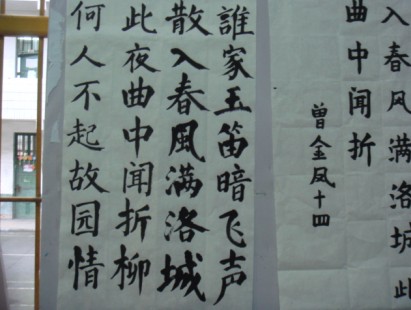 入春风满洛城此
曲中闻折
曾金凤十四
誰家玉笛暗飞声
散入春風满洛城
此夜曲中闻折柳
何人不起故园情